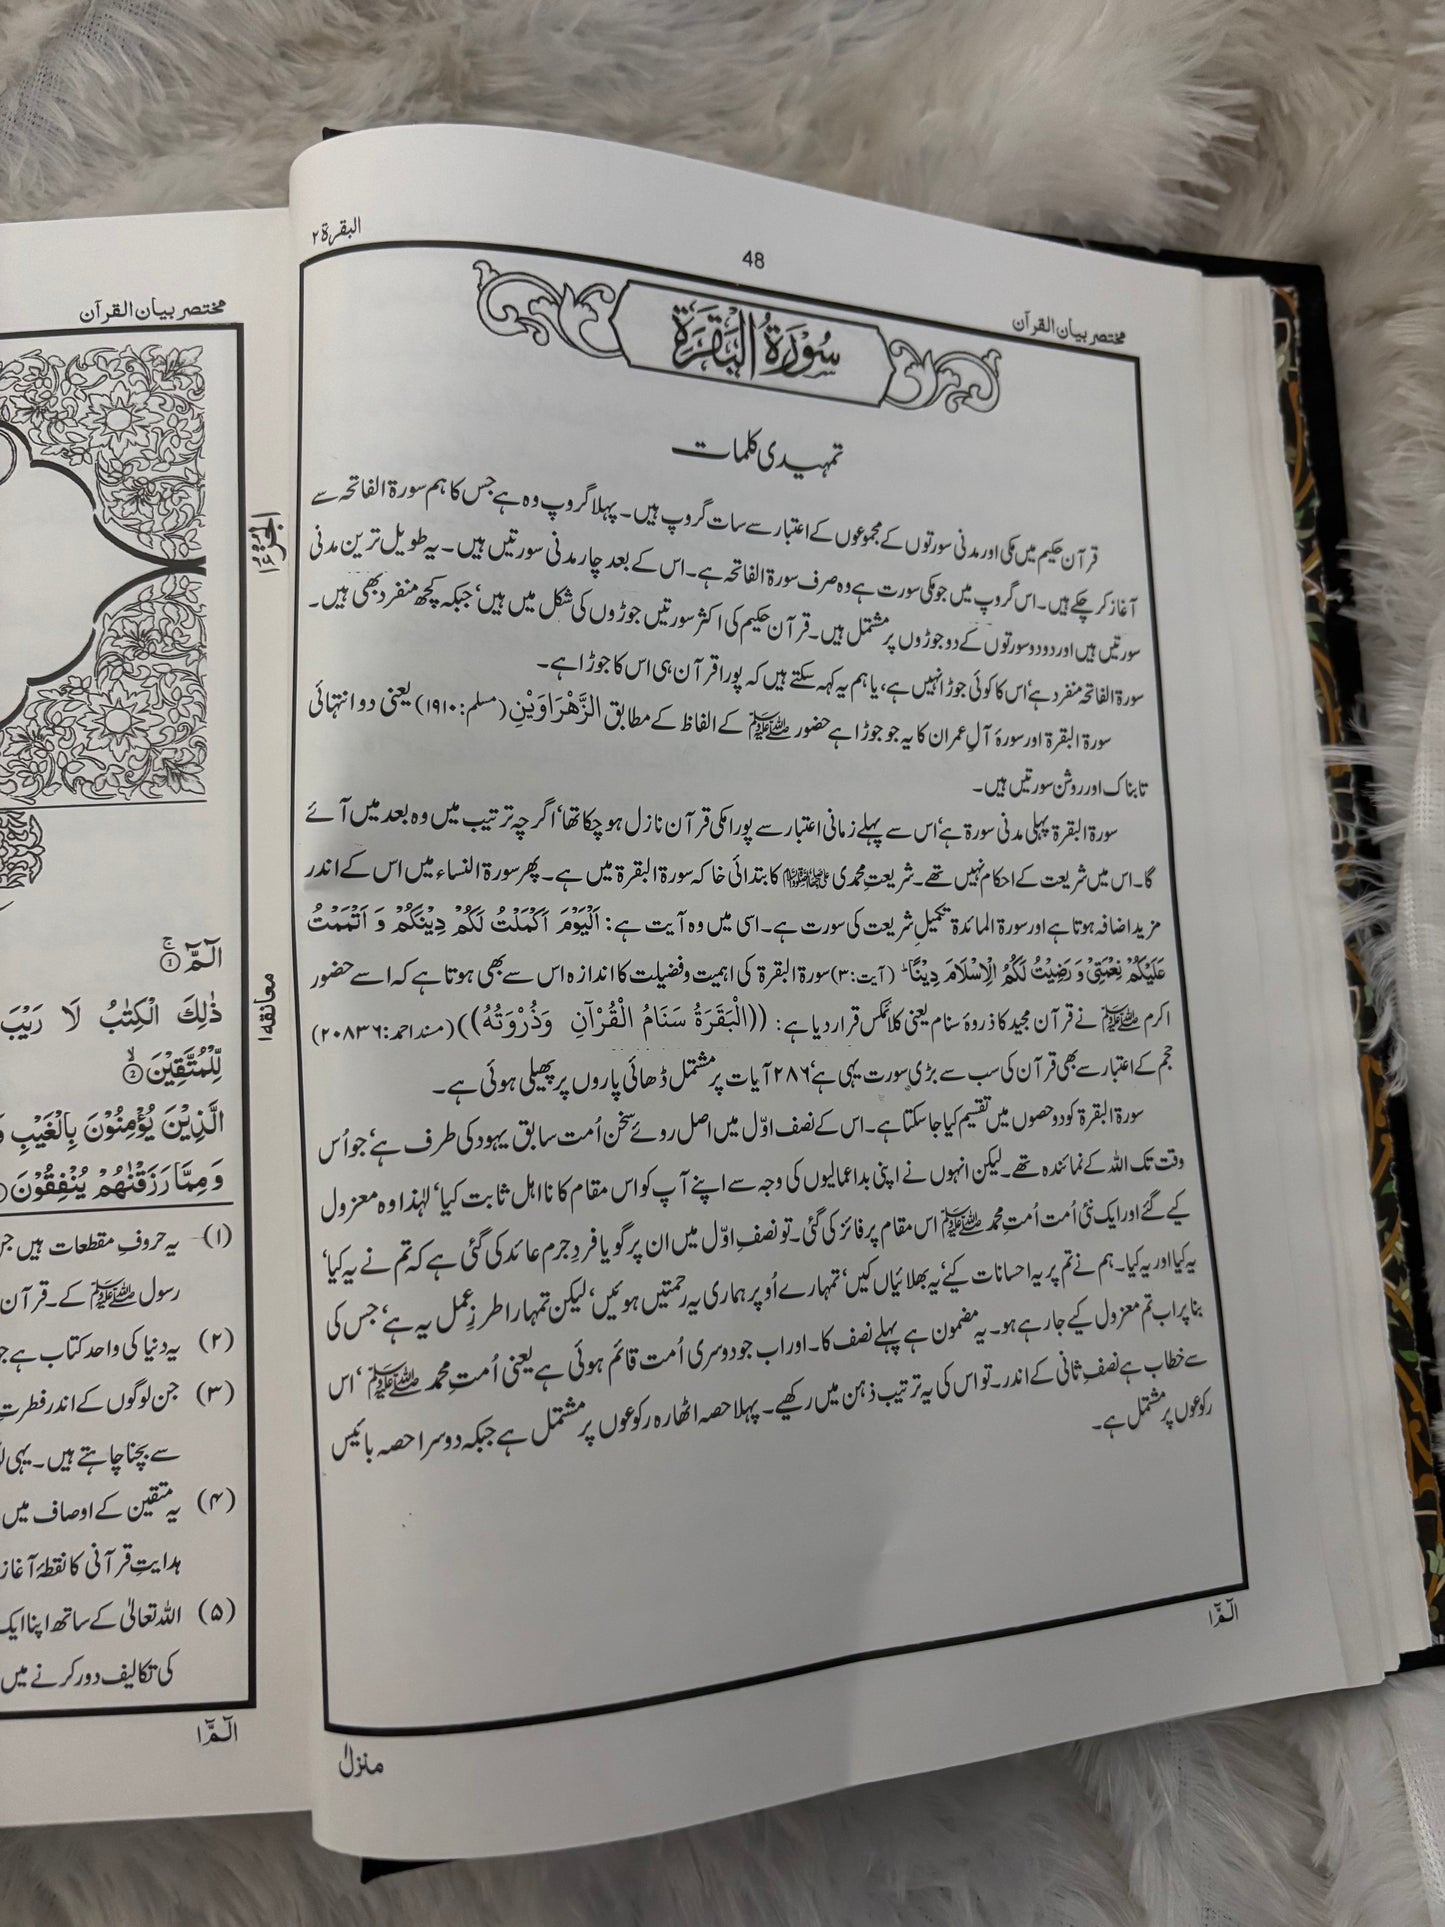 البقرة ۲
48
مختصر بیان القرآن
سُوْرَةُ الْبَقَرَة
تمہیدی کلمات
قرآن حکیم میں مکی اور مدنی سورتوں کے مجموعوں کے اعتبار سے سات گروپ ہیں۔ پہلا گروپ وہ ہے جس کا ہم سورۃ الفاتحہ سے
آغاز کر چکے ہیں۔ اس گروپ میں جو مکی سورت ہے وہ صرف سورۃ الفاتحہ ہے۔ اس کے بعد چار مدنی سورتیں ہیں۔ یہ طویل ترین مدنی
سورتیں ہیں اور دو دو سورتوں کے دو جوڑوں پر مشتمل ہیں۔ قرآن حکیم کی اکثر سورتیں جوڑوں کی شکل میں ہیں‘ جبکہ کچھ منفرد بھی ہیں۔
سورۃ الفاتحہ منفرد ہے‘ اس کا کوئی جوڑا نہیں ہے، یا ہم یہ کہہ سکتے ہیں کہ پورا قرآن ہی اس کا جوڑا ہے۔
سورۃ البقرۃ اور سورۂ آلِ عمران کا یہ جو جوڑا ہے حضور ﷺ کے الفاظ کے مطابق الزَّهْرَاوَيْنِ (مسلم: ۱۹۱۰) یعنی دو انتہائی
تابناک اور روشن سورتیں ہیں۔
سورۃ البقرۃ پہلی مدنی سورۃ ہے‘ اس سے پہلے زمانی اعتبار سے پورا مکی قرآن نازل ہو چکا تھا‘ اگرچہ ترتیب میں وہ بعد میں آئے
گا۔ اس میں شریعت کے احکام نہیں تھے۔ شریعتِ محمدی ﷺ کا بتدائی خاکہ سورۃ البقرۃ میں ہے۔ پھر سورۃ النساء میں اس کے اندر
مزید اضافہ ہوتا ہے اور سورۃ المائدۃ تکمیلِ شریعت کی سورت ہے۔ اسی میں وہ آیت ہے: اَلْيَوْمَ اَكْمَلْتُ لَكُمْ دِيْنَكُمْ وَ اَتْمَمْتُ
عَلَيْكُمْ نِعْمَتِيْ وَ رَضِيْتُ لَكُمُ الْاِسْلَامَ دِيْنًا ؕ (آیت: ۳) سورۃ البقرۃ کی اہمیت و فضیلت کا اندازہ اس سے بھی ہوتا ہے کہ اسے حضور
اکرم ﷺ نے قرآن مجید کا ذروۂ سنام یعنی کلائمکس قرار دیا ہے: ((الْبَقَرَةُ سَنَامُ الْقُرْآنِ وَذُرْوَتُهُ)) (مسند احمد: ۲۰۸۳۶)
حجم کے اعتبار سے بھی قرآن کی سب سے بڑی سورت یہی ہے‘ ۲۸۶ آیات پر مشتمل ڈھائی پاروں پر پھیلی ہوئی ہے۔
سورۃ البقرۃ کو دو حصوں میں تقسیم کیا جا سکتا ہے۔ اس کے نصف اوّل میں اصل روئے سخن اُمت سابق یہود کی طرف ہے‘ جو اُس
وقت تک اللہ کے نمائندہ تھے۔ لیکن انہوں نے اپنی بداعمالیوں کی وجہ سے اپنے آپ کو اس مقام کا نا اہل ثابت کیا‘ لہٰذا وہ معزول
کیے گئے اور ایک نئی اُمت اُمتِ محمد ﷺ اس مقام پر فائز کی گئی۔ تو نصفِ اوّل میں ان پر گویا فردِ جرم عائد کی گئی ہے کہ تم نے یہ کیا‘
یہ کیا اور یہ کیا۔ ہم نے تم پر یہ احسانات کیے‘ یہ بھلائیاں کیں‘ تمہارے اُوپر ہماری یہ رحمتیں ہوئیں‘ لیکن تمہارا طرزِ عمل یہ ہے‘ جس کی
بنا پر اب تم معزول کیے جا رہے ہو۔ یہ مضمون ہے پہلے نصف کا۔ اور اب جو دوسری اُمت قائم ہوئی ہے یعنی اُمتِ محمد ﷺ ‘ اس
سے خطاب ہے نصفِ ثانی کے اندر۔ تو اس کی یہ ترتیب ذہن میں رکھیے۔ پہلا حصہ اٹھارہ رکوعوں پر مشتمل ہے جبکہ دوسرا حصہ بائیس
رکوعوں پر مشتمل ہے۔
الٓمّٓ ۱
منزل۱
مختصر بیان القرآن
معانقہ ۱
الٓمّٓ ۚ ①
ذٰلِكَ الْكِتٰبُ لَا رَيْبَ
لِّلْمُتَّقِيْنَ ۙ ②
الَّذِيْنَ يُؤْمِنُوْنَ بِالْغَيْبِ وَ
وَ مِمَّا رَزَقْنٰهُمْ يُنْفِقُوْنَ
(۱) یہ حروفِ مقطعات ہیں
رسول ﷺ کے۔ قرآن
(۲) یہ دنیا کی واحد کتاب ہے
(۳) جن لوگوں کے اندر فطرت
سے بچنا چاہتے ہیں۔ یہی
(۴) یہ متقین کے اوصاف میں
ہدایتِ قرآنی کا نقطۂ آغاز
(۵) اللہ تعالیٰ کے ساتھ اپنا ایک
کی تکالیف دور کرنے میں
الٓمّٓ ۱